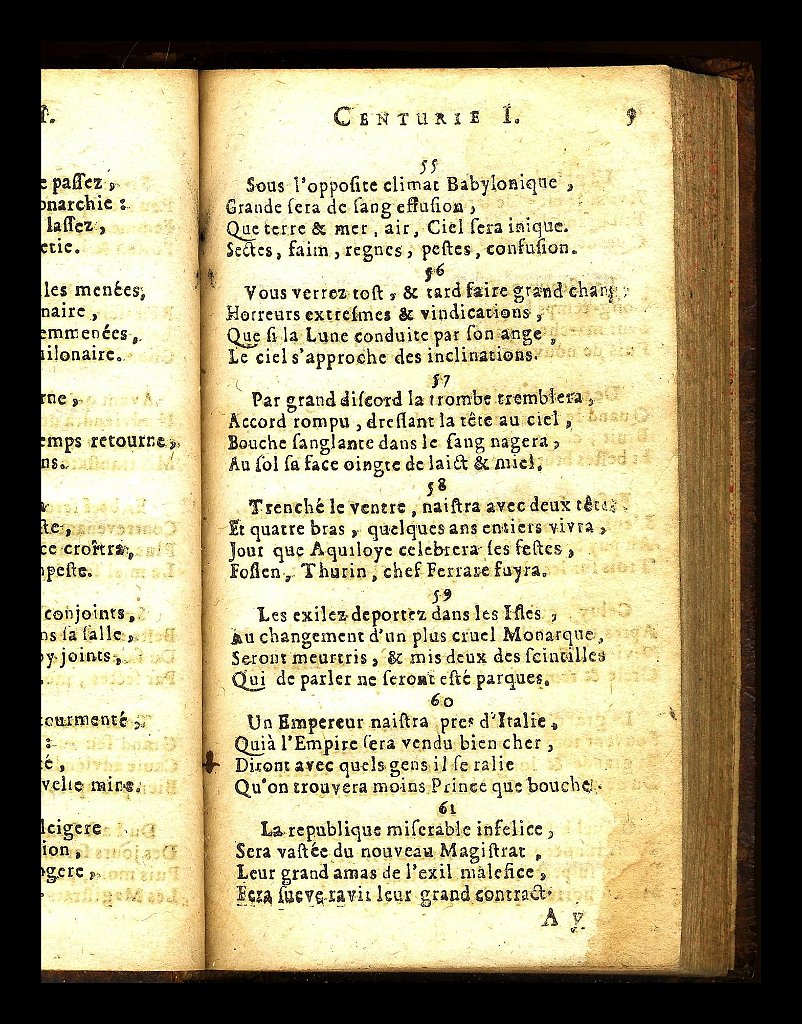 I.
e paſſez,
onarchie :
laſſez,
etie.
les menées,
naire,
emmenées,
uilonaire.
rne,
emps retourne,
ns.
ſte,
ce croîtra,
peſte.
conjoints,
ns ſa ſalle,
by joints,
tourmenté,
:
é,
velle mine.
lcigere
ion,
ogere,
CENTURIE I. 9
55
Sous l'oppoſite climat Babylonique,
Grande ſera de ſang effuſion,
Que terre & mer, air, Ciel ſera inique.
Sectes, faim, regnes, peſtes, confuſion.
56
Vous verrez toſt, & tard faire grand chang
Horreurs extreſmes & vindications,
Que ſi la Lune conduite par ſon ange,
Le ciel s'approche des inclinations.
57
Par grand diſcord la trombe tremblera,
Accord rompu, dreſſant la tête au ciel,
Bouche ſanglante dans le ſang nagera,
Au ſol ſa face ointe de laict & miel.
58
Trenché le ventre, naiſtra avec deux têtes
Et quatre bras, quelques ans entiers vivra,
Jour que Aquiloye celebrera ſes feſtes,
Foſſen, Thurin, chef Ferrare fuyra.
59
Les exilez deportez dans les Iſles,
Au changement d'un plus cruel Monarque,
Seront meurtris, & mis deux des ſcintilles
Qui de parler ne ſeront eſté parques.
60
Un Empereur naiſtra pres d'Italie,
Quià l'Empire ſera vendu bien cher,
Diront avec quels gens il ſe ralie
Qu'on trouvera moins Prince que boucher.
61
La republique miſerable infelice,
Sera vaſtée du nouveau Magiſtrat,
Leur grand amas de l'exil malefice,
Fera ſueve ravir leur grand contract.
A v